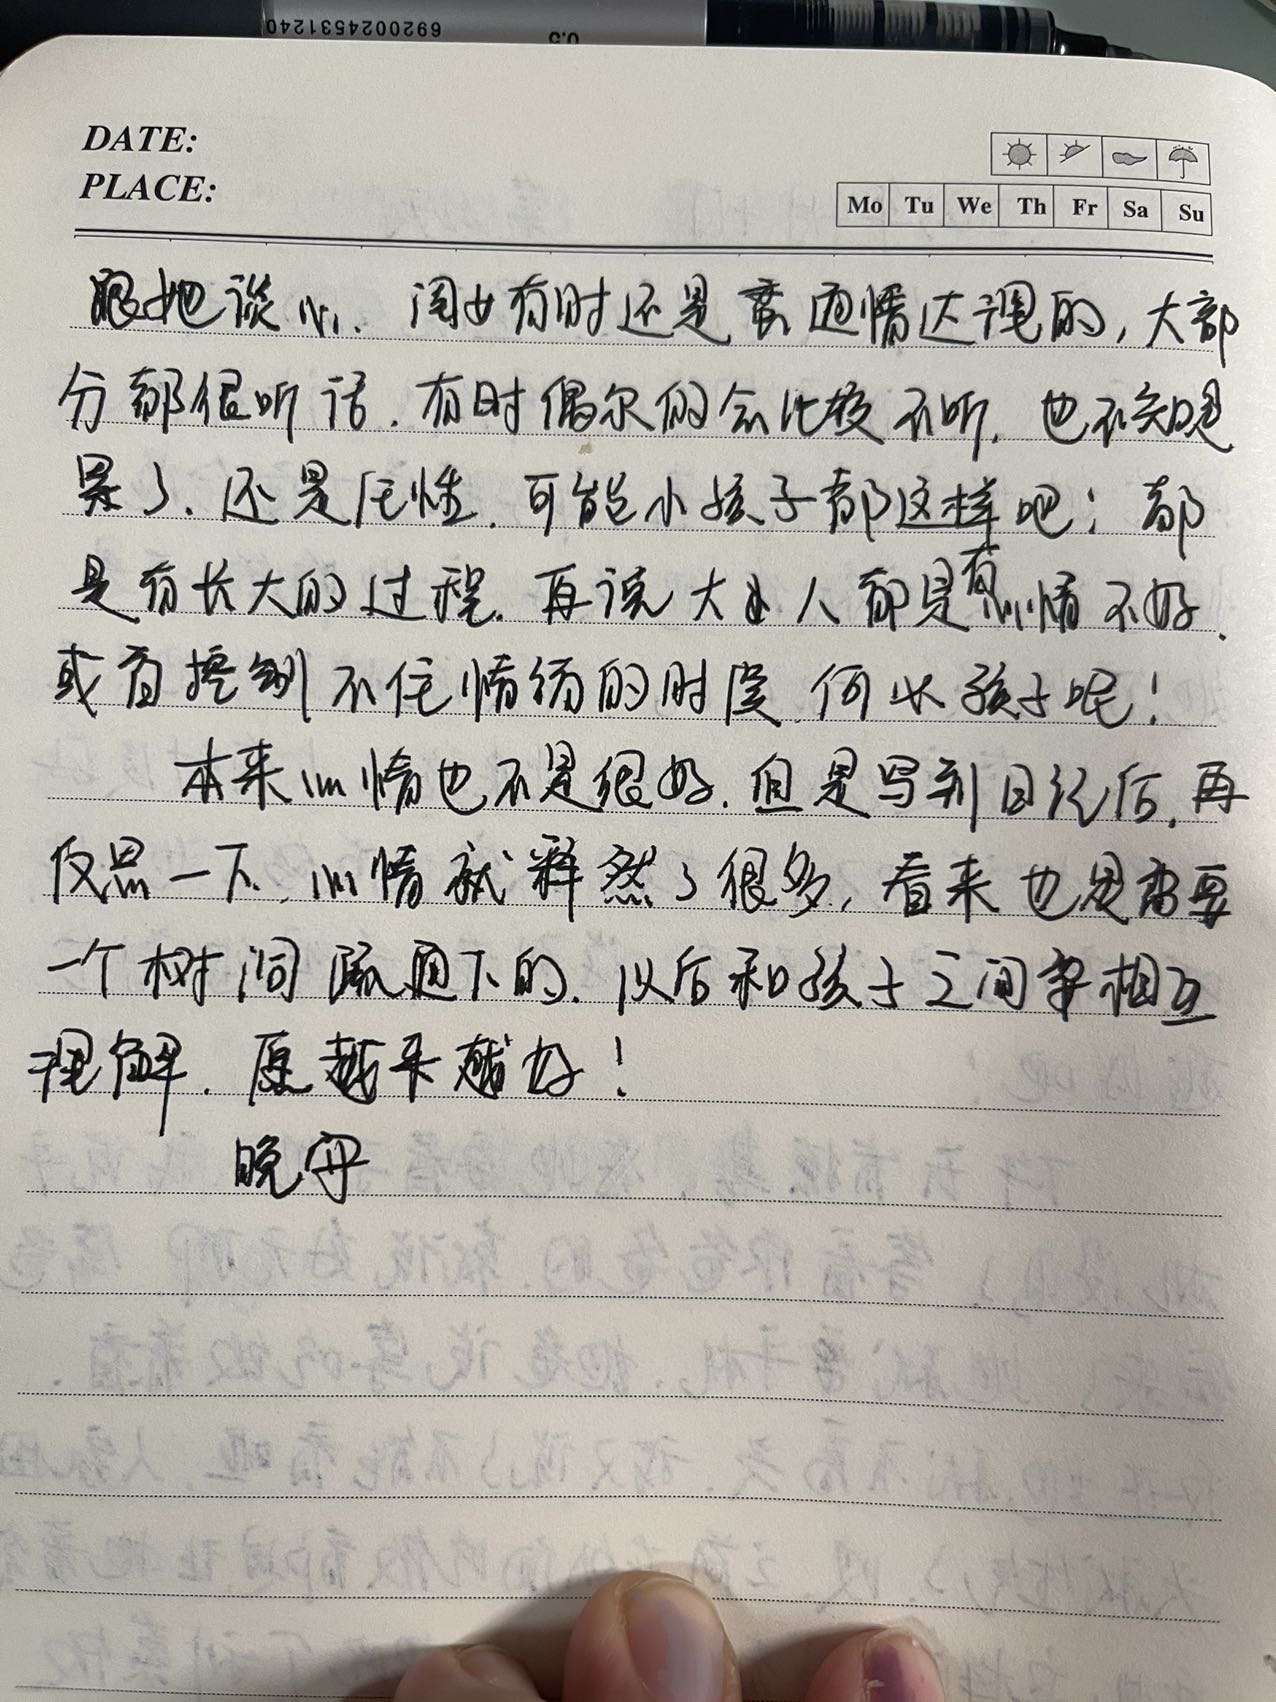 6920024531240
0.5
DATE:
PLACE:
Mo Tu We Th Fr Sa Su
跟她谈心. 闺女有时还是蛮通情达理的, 大部
分都很听话. 有时偶尔的会比较不听. 也不知是
累了. 还是任性. 可能小孩子都这样吧! 都
是有长大的过程. 再说大人都是有心情不好.
或有控制不住情绪的时候. 何况孩子呢!
本来心情也不是很好. 但是写到日记后. 再
反思一下. 心情就释然了很多, 看来也是需要
一个树洞疏通下的. 以后和孩子之间多相互
理解. 愿越来越好!
晚安